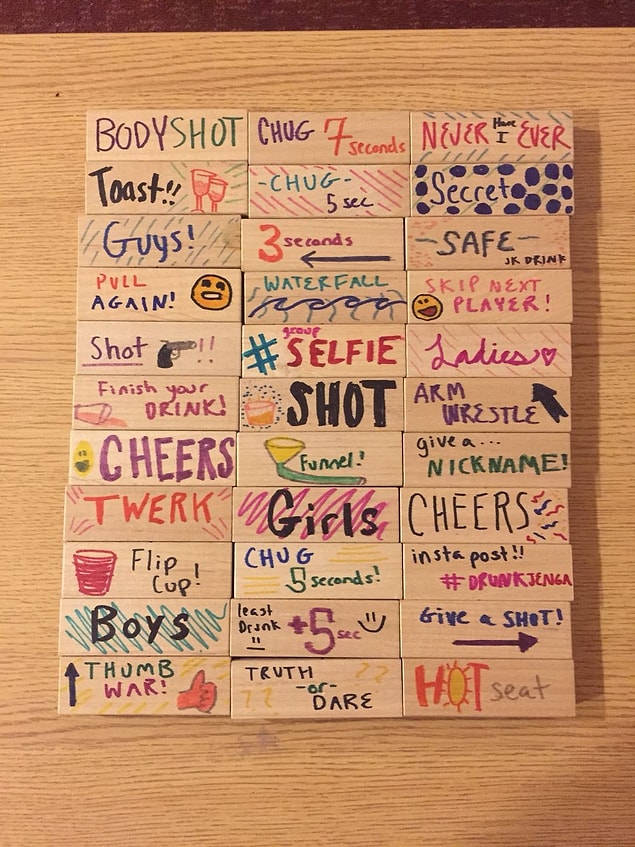 BODYSHOT
CHUG 7 seconds
NEVER Have I EVER
Toast!!
-CHUG-
5 sec
Secret
Guys!
3 seconds
-SAFE-
JK DRINK
PULL
AGAIN!
WATERFALL
SKIP NEXT
PLAYER!
Shot !!
group
#SELFIE
Ladies
Finish your
DRINK!
SHOT
ARM
WRESTLE
CHEERS
Funnel!
give a...
NICKNAME!
TWERK
Girls
CHEERS
Flip
Cup!
CHUG
5 seconds!
insta post!!
#DRUNKJENGA
Boys
least
Drunk
+5 sec
Give a SHOT!
THUMB
WAR!
TRUTH
-or-
DARE
?? ??
HOT seat